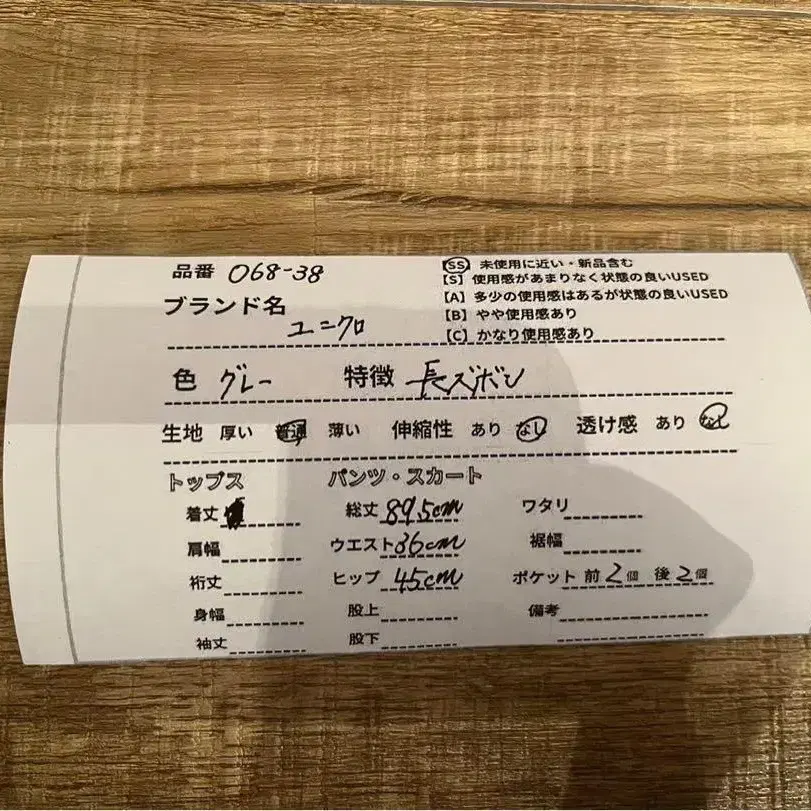 品番 068-38
ブランド名
ユニクロ
SS 未使用に近い・新品含む
【S】使用感があまりなく状態の良いUSED
【A】多少の使用感はあるが状態の良いUSED
【B】やや使用感あり
【C】かなり使用感あり
色 グレー 特徴 長ズボン
生地 厚い 普通 薄い 伸縮性 あり なし 透け感 あり なし
トップス
着丈
肩幅
裄丈
身幅
袖丈
パンツ・スカート
総丈 89.5cm
ウエスト 36cm
ヒップ 45cm
股上
股下
ワタリ
裾幅
ポケット 前 2個 後 2個
備考